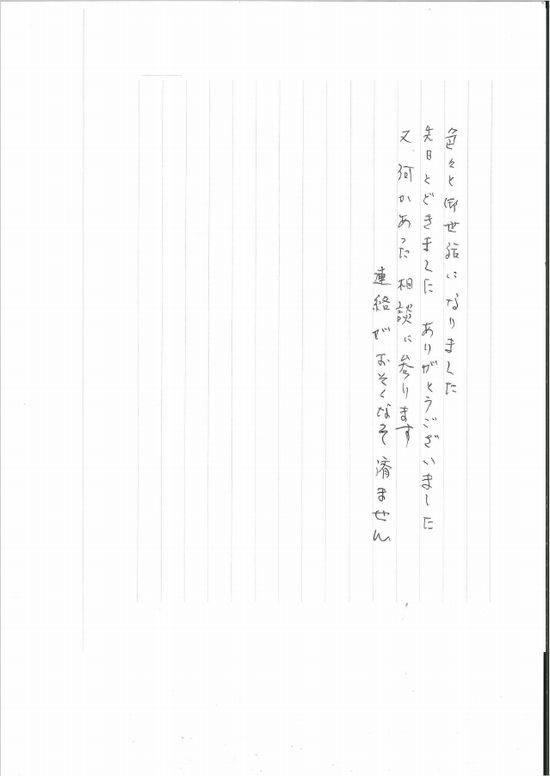 色々と御世話になりました
先日とどきました ありがとうございました
又、何かあった相談に参ります
連絡がおそくなって済ません